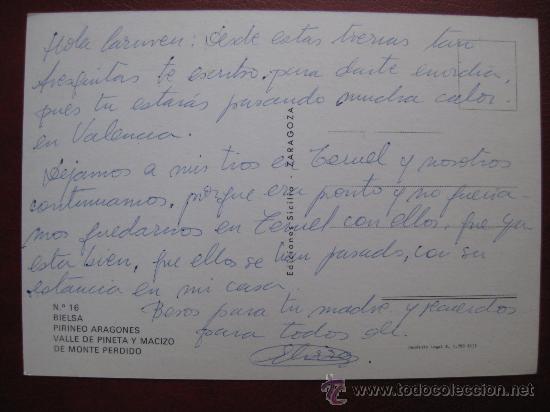 Hola Carmen: Desde estas tierras tan
fresquitas te escribo para darte envidia,
pues tu estarás pasando mucha calor
en Valencia.
Dejamos a mis tios en Teruel y nosotros
continuamos, porque era pronto y no queria-
mos quedarnos en Teruel con ellos, que ya
esta bien, que ellos se han pasado, con su
estancia en mi casa.
Besos para tu madre y recuerdos
para todos de.
Ediciones Sicilia - ZARAGOZA
N.º 16
BIELSA
PIRINEO ARAGONES
VALLE DE PINETA Y MACIZO
DE MONTE PERDIDO
Depósito Legal
todocoleccion.net